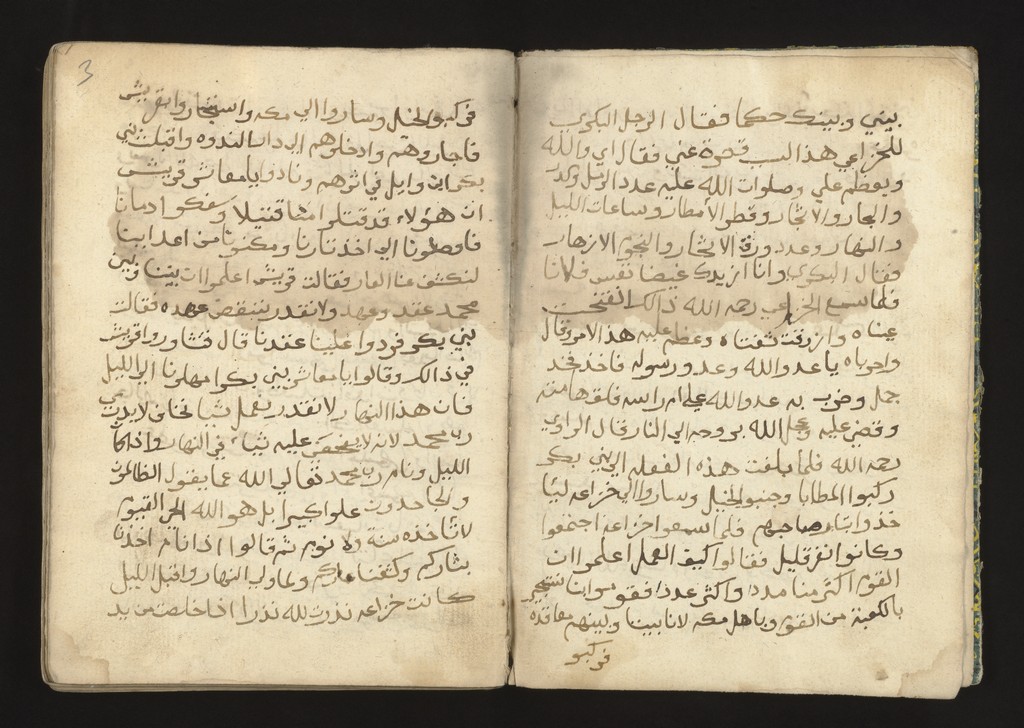 بيني وبينك حكما فقال الرجل البكري
للخزاعي هذا السب قصرة عني فقال اي والله
ويعظم علي وصلوات الله عليه عدد الرمل وكدر
والبحار والاشجار وقطر الامطار وساعات الليل
والنهار وعدد ورق الاشجار والنجوم الازهار
فقال البكري وانا ازيدك غيضا
فلما سمع الخزاعي رحمه الله ذالك انفتحت
عيناه وازرقت شفتاه وعظم عليه هذا الامر وقال
واحرباه يا عدو الله وعدو رسوله فاخذ فخذ
جمل وضرب به عدو الله علي ام راسه فلقها منه
وقضي عليه وعجل الله بروحه الي النار قال الراوي
رحمه الله فلما بلغت هذه الفعله الي بني بكر
ركبوا المطايا وجنبوا الخيل وساروا الي خزاعه ليا
خذوا بثار صاحبهم فلما سمعوا خزاعه اجتمعوا
وكانوا نفر قليل فقالوا كيف العمل اعلموا ان
القوم اكثر منا مددا واكثر عددا فقوموا بنا نستجير
بالكعبة من القوم وباهل مكه لان بيننا وبينهم معاقده
فركبو
3
فركبو الخيل وساروا الي مكه واستجاروا بقريش
فاجاروهم وادخلوهم الي دار الندوه واقبلت بني
بكر ابن وايل في اثرهم ونادوا يا معاشر قريش
ان هؤلاء قد قتلوا منا قتيلا وسفكوا دمانا
فاوصلونا الي اخذ تارنا ومكنونا من اعداينا
لنكشف عنا العار فقالت قريش اعلموا ان بيننا وبين
محمد عقد وعهد ولا نقدر ننقض عهده فقالت
بني بكر فردوا علينا عقدنا قال فتشاوروا قريش
في ذالك وقالوا يا معاشر بني بكر امهلونا الي الليل
فان هذا النهار لا نقدر نعمل شيا نخاف لا يدري
رب محمد لانه لا يخفي عليه شياء في النهار واذا كان
الليل ونام رب محمد تعالي الله عما يقول الظالمون
والجاحدون علوا كبيرا بل هو الله الحي القيوم
لا تاخذه سنة ولا نوم ثم قالوا اذا نام اخذنا
بثاركم وكشفنا عاركم ولما ولي النهار واقبل الليل
كانت خزاعه نذرت لله نذرا اذا خلصت من يد